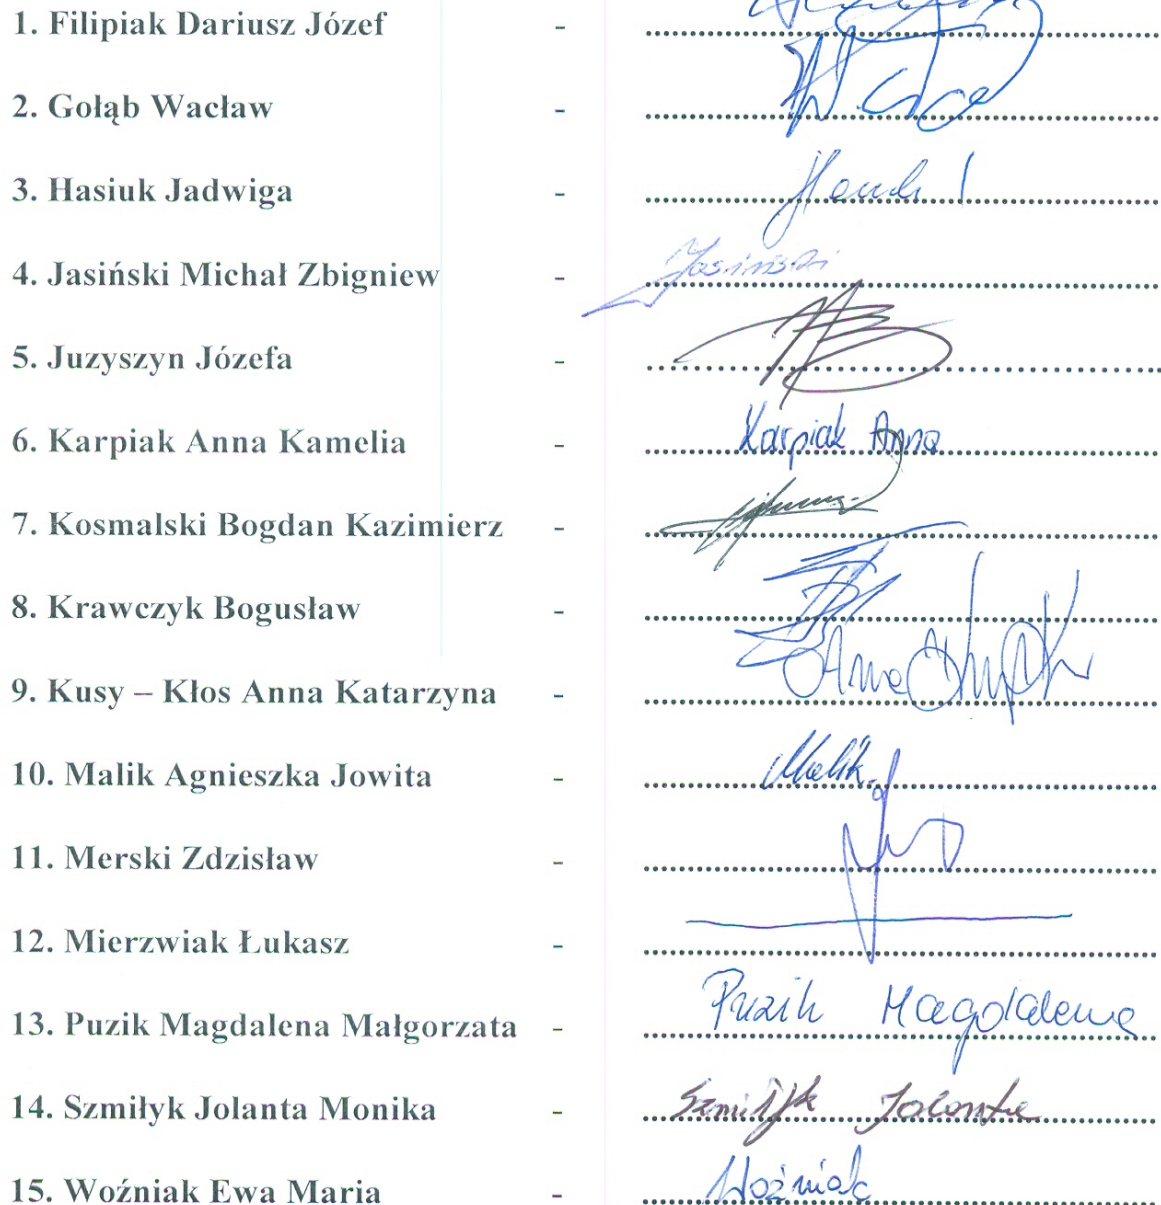 1. Filipiak Dariusz Józef -
2. Gołąb Wacław -
3. Hasiuk Jadwiga -
4. Jasiński Michał Zbigniew - Jasiński
5. Juzyszyn Józefa -
6. Karpiak Anna Kamelia - Karpiak Anna
7. Kosmalski Bogdan Kazimierz -
8. Krawczyk Bogusław -
9. Kusy – Kłos Anna Katarzyna - Anna
10. Malik Agnieszka Jowita - Malik
11. Merski Zdzisław -
12. Mierzwiak Łukasz -
13. Puzik Magdalena Małgorzata - Puzik Magdalena
14. Szmiłyk Jolanta Monika - Szmiłyk Jolanta
15. Woźniak Ewa Maria - Woźniak